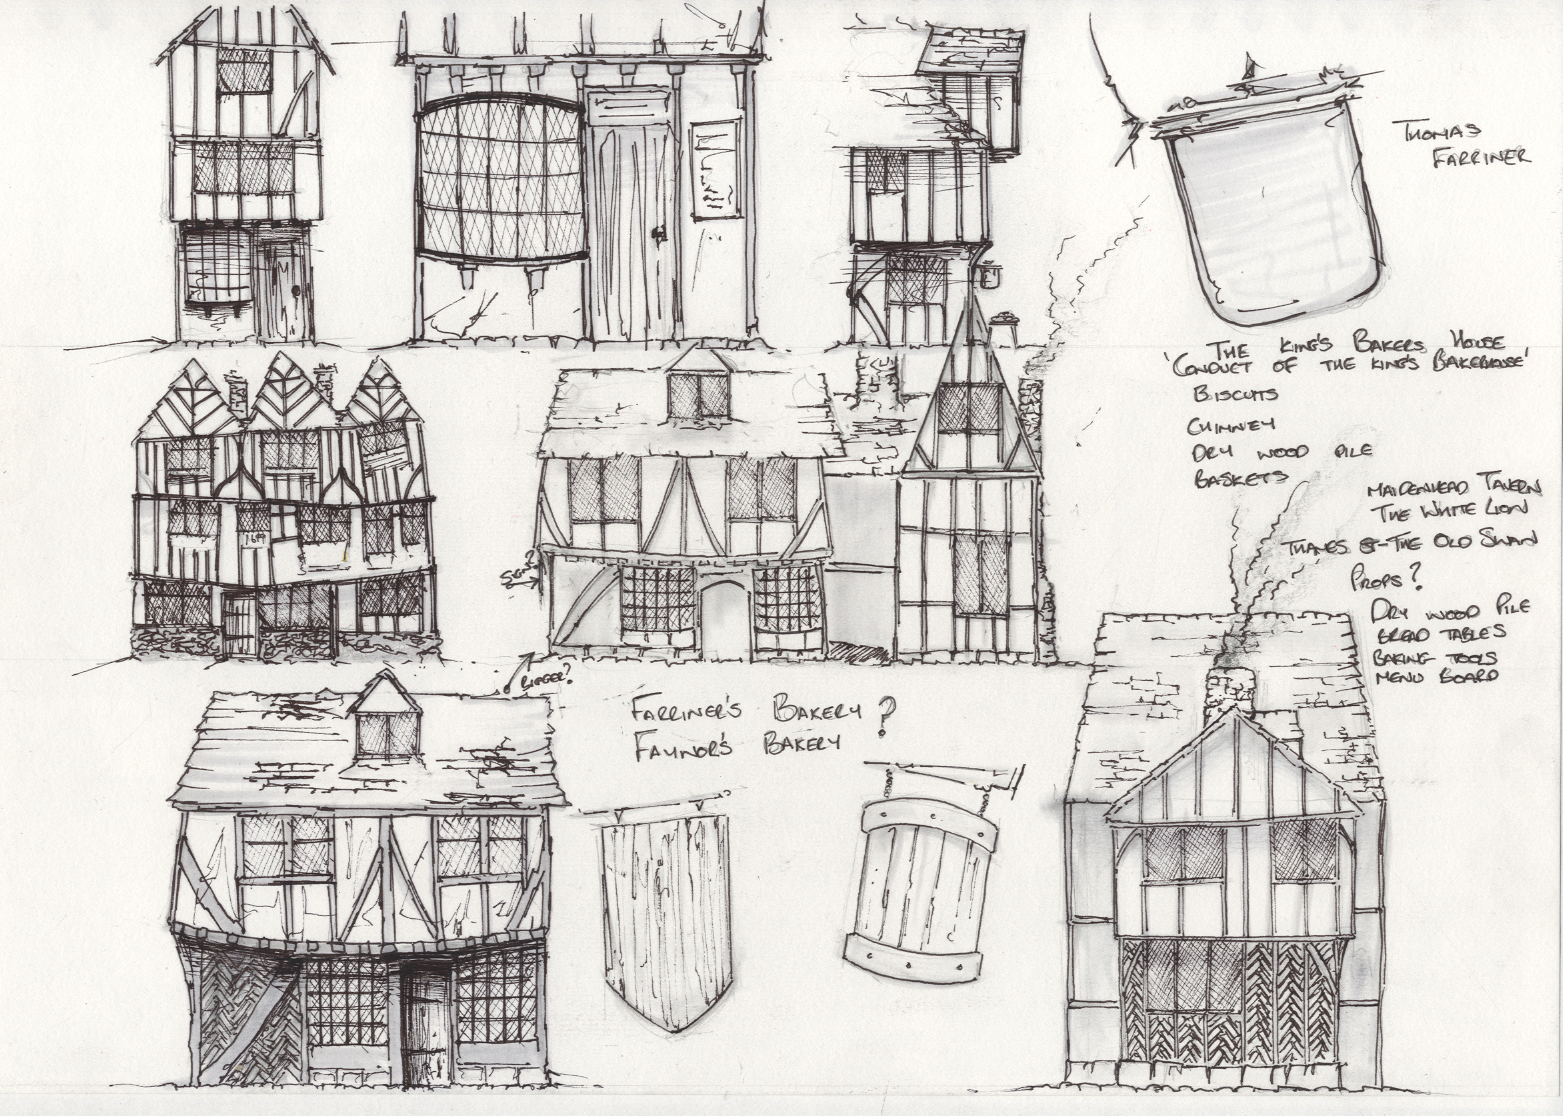 THOMAS
FARRINER
THE KING'S BAKERS HOUSE
'CONDUCT OF THE KING'S BAKEHOUSE'
BISCUITS
CHIMNEY
DRY WOOD PILE
BASKETS
MAIDENHEAD TAVERN
THE WHITE LION
THAMES ST - THE OLD SWAN
PROPS?
DRY WOOD PILE
BREAD TABLES
BAKING TOOLS
MENU BOARD
BIGGER?
FARRINER'S BAKERY ?
FAYNOR'S BAKERY